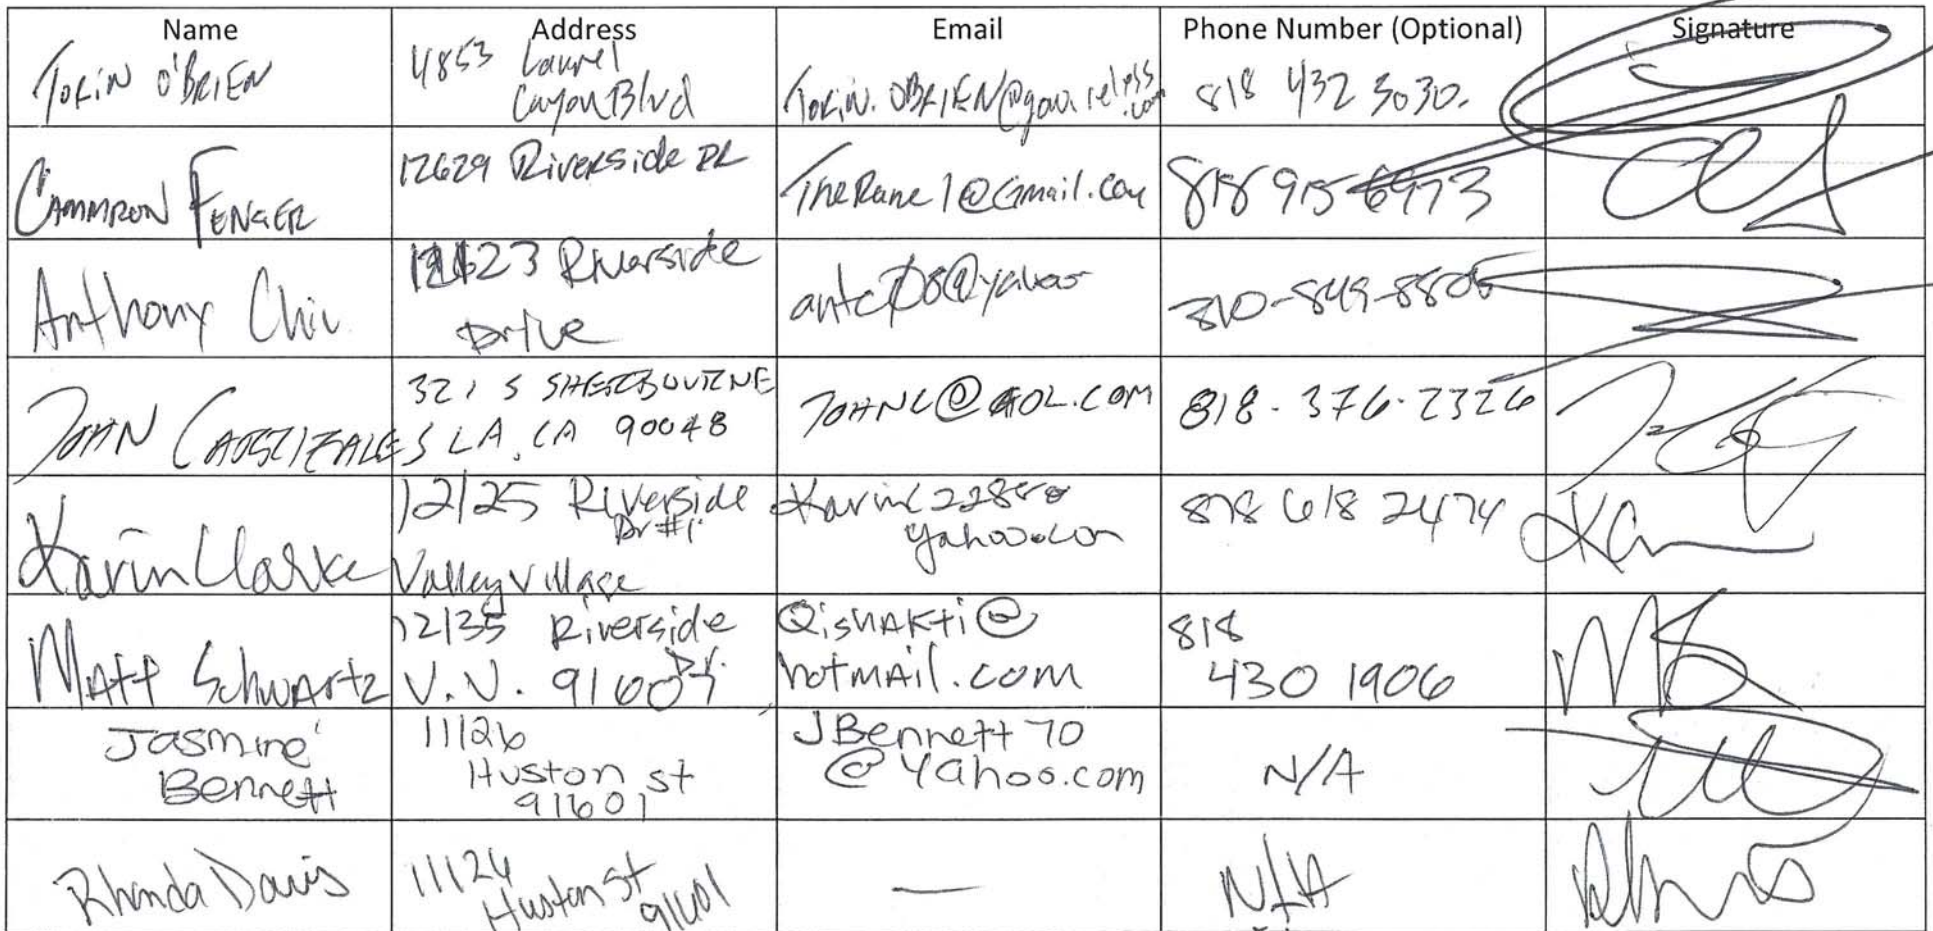 Name Address Email Phone Number (Optional) Signature
Torin O'BRIEN 4853 Laurel
CayonBlvd Torin.OBRIEN@ .com 818 432 3030.
CAMMRON FENGER 12629 Riverside DR TheRane1@Gmail.com 818 915 6973
Anthony Chiu 12623 Riverside
Drive antc08@yahoo 310-849-8805
JOHN CARRIZALES 321 S SHERBOURNE
LA, CA 90048 JOHNC@AOL.COM 818-376-2326
Karin Clarke 12125 Riverside
Dr #1
Valley Village yahoo.com 818 618 2474
MATT Schwartz 12135 Riverside
Dr.
V.V. 91607 QiSHAKTi@
hotmail.com 818
430 1906
Jasmine
Bennett 11126
Huston St
91601 JBennett70
@Yahoo.com N/A
Rhonda Davis 11126
Huston St
91601 — N/A